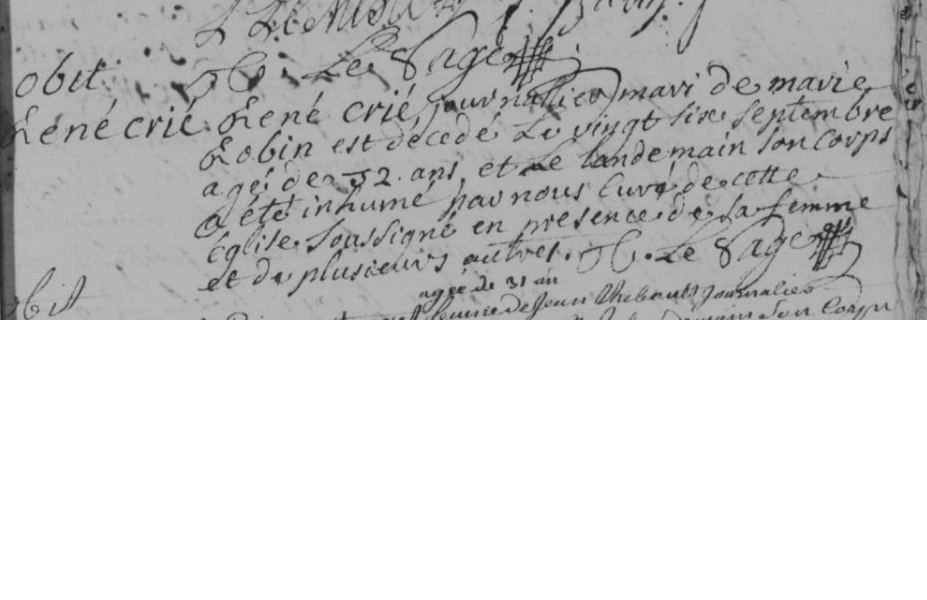 obit. H. Le Sage
René crié. René crié, journalier, mari de marie
Robin est décédé Le vingt sixe septembre
agé de 52 ans, et Le landemain son Corps
a été inhumé par nous Curé de cette
Eglise soussigné en presence de sa femme
et de plusieurs autres. H. Le Sage
agée de 31 an
obit
femme de Jean Thibault Journalier
son Corps